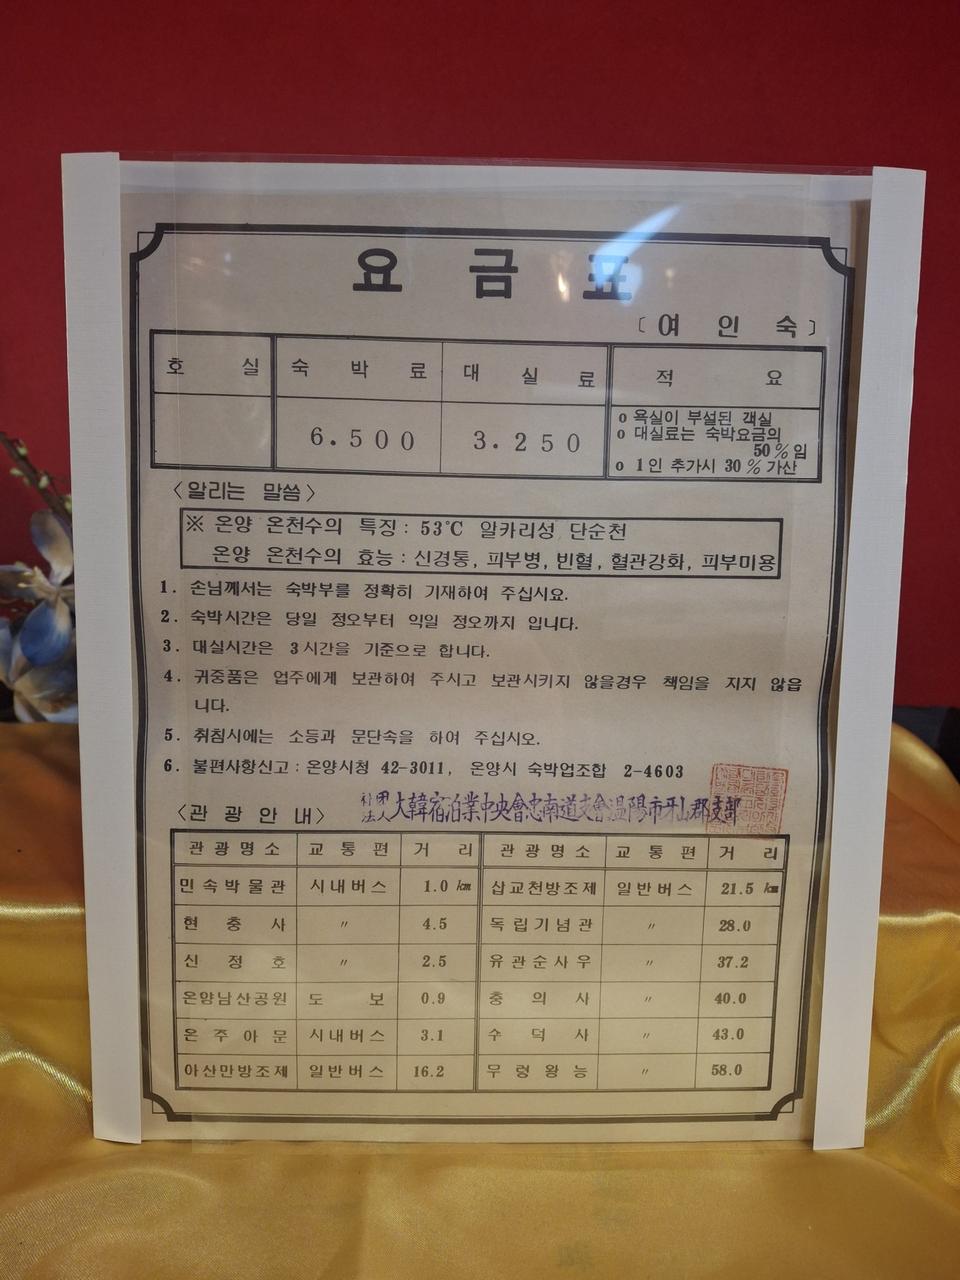 요 금 표
〔여 인 숙〕
호 실 숙 박 료 대 실 료 적 요
6.500 3.250
o 욕실이 부설된 객실
o 대실료는 숙박요금의
50%임
o 1인 추가시 30%가산
〈알리는 말씀〉
※ 온양 온천수의 특징: 53℃ 알카리성 단순천
온양 온천수의 효능: 신경통, 피부병, 빈혈, 혈관강화, 피부미용
1. 손님께서는 숙박부를 정확히 기재하여 주십시요.
2. 숙박시간은 당일 정오부터 익일 정오까지 입니다.
3. 대실시간은 3시간을 기준으로 합니다.
4. 귀중품은 업주에게 보관하여 주시고 보관시키지 않을경우 책임을 지지 않읍
니다.
5. 취침시에는 소등과 문단속을 하여 주십시오.
6. 불편사항신고: 온양시청 42-3011, 온양시 숙박업조합 2-4603
社團法人大韓宿泊業中央會忠南道支會溫陽市牙山郡支部
〈관 광 안 내〉
관광명소 교통편 거 리 관광명소 교통편 거 리
민속박물관 시내버스 1.0㎞ 삽교천방조제 일반버스 21.5㎞
현 충 사 〃 4.5 독립기념관 〃 28.0
신 정 호 〃 2.5 유관순사우 〃 37.2
온양남산공원 도 보 0.9 충 의 사 〃 40.0
온 주 아 문 시내버스 3.1 수 덕 사 〃 43.0
아산만방조제 일반버스 16.2 무 령 왕 능 〃 58.0